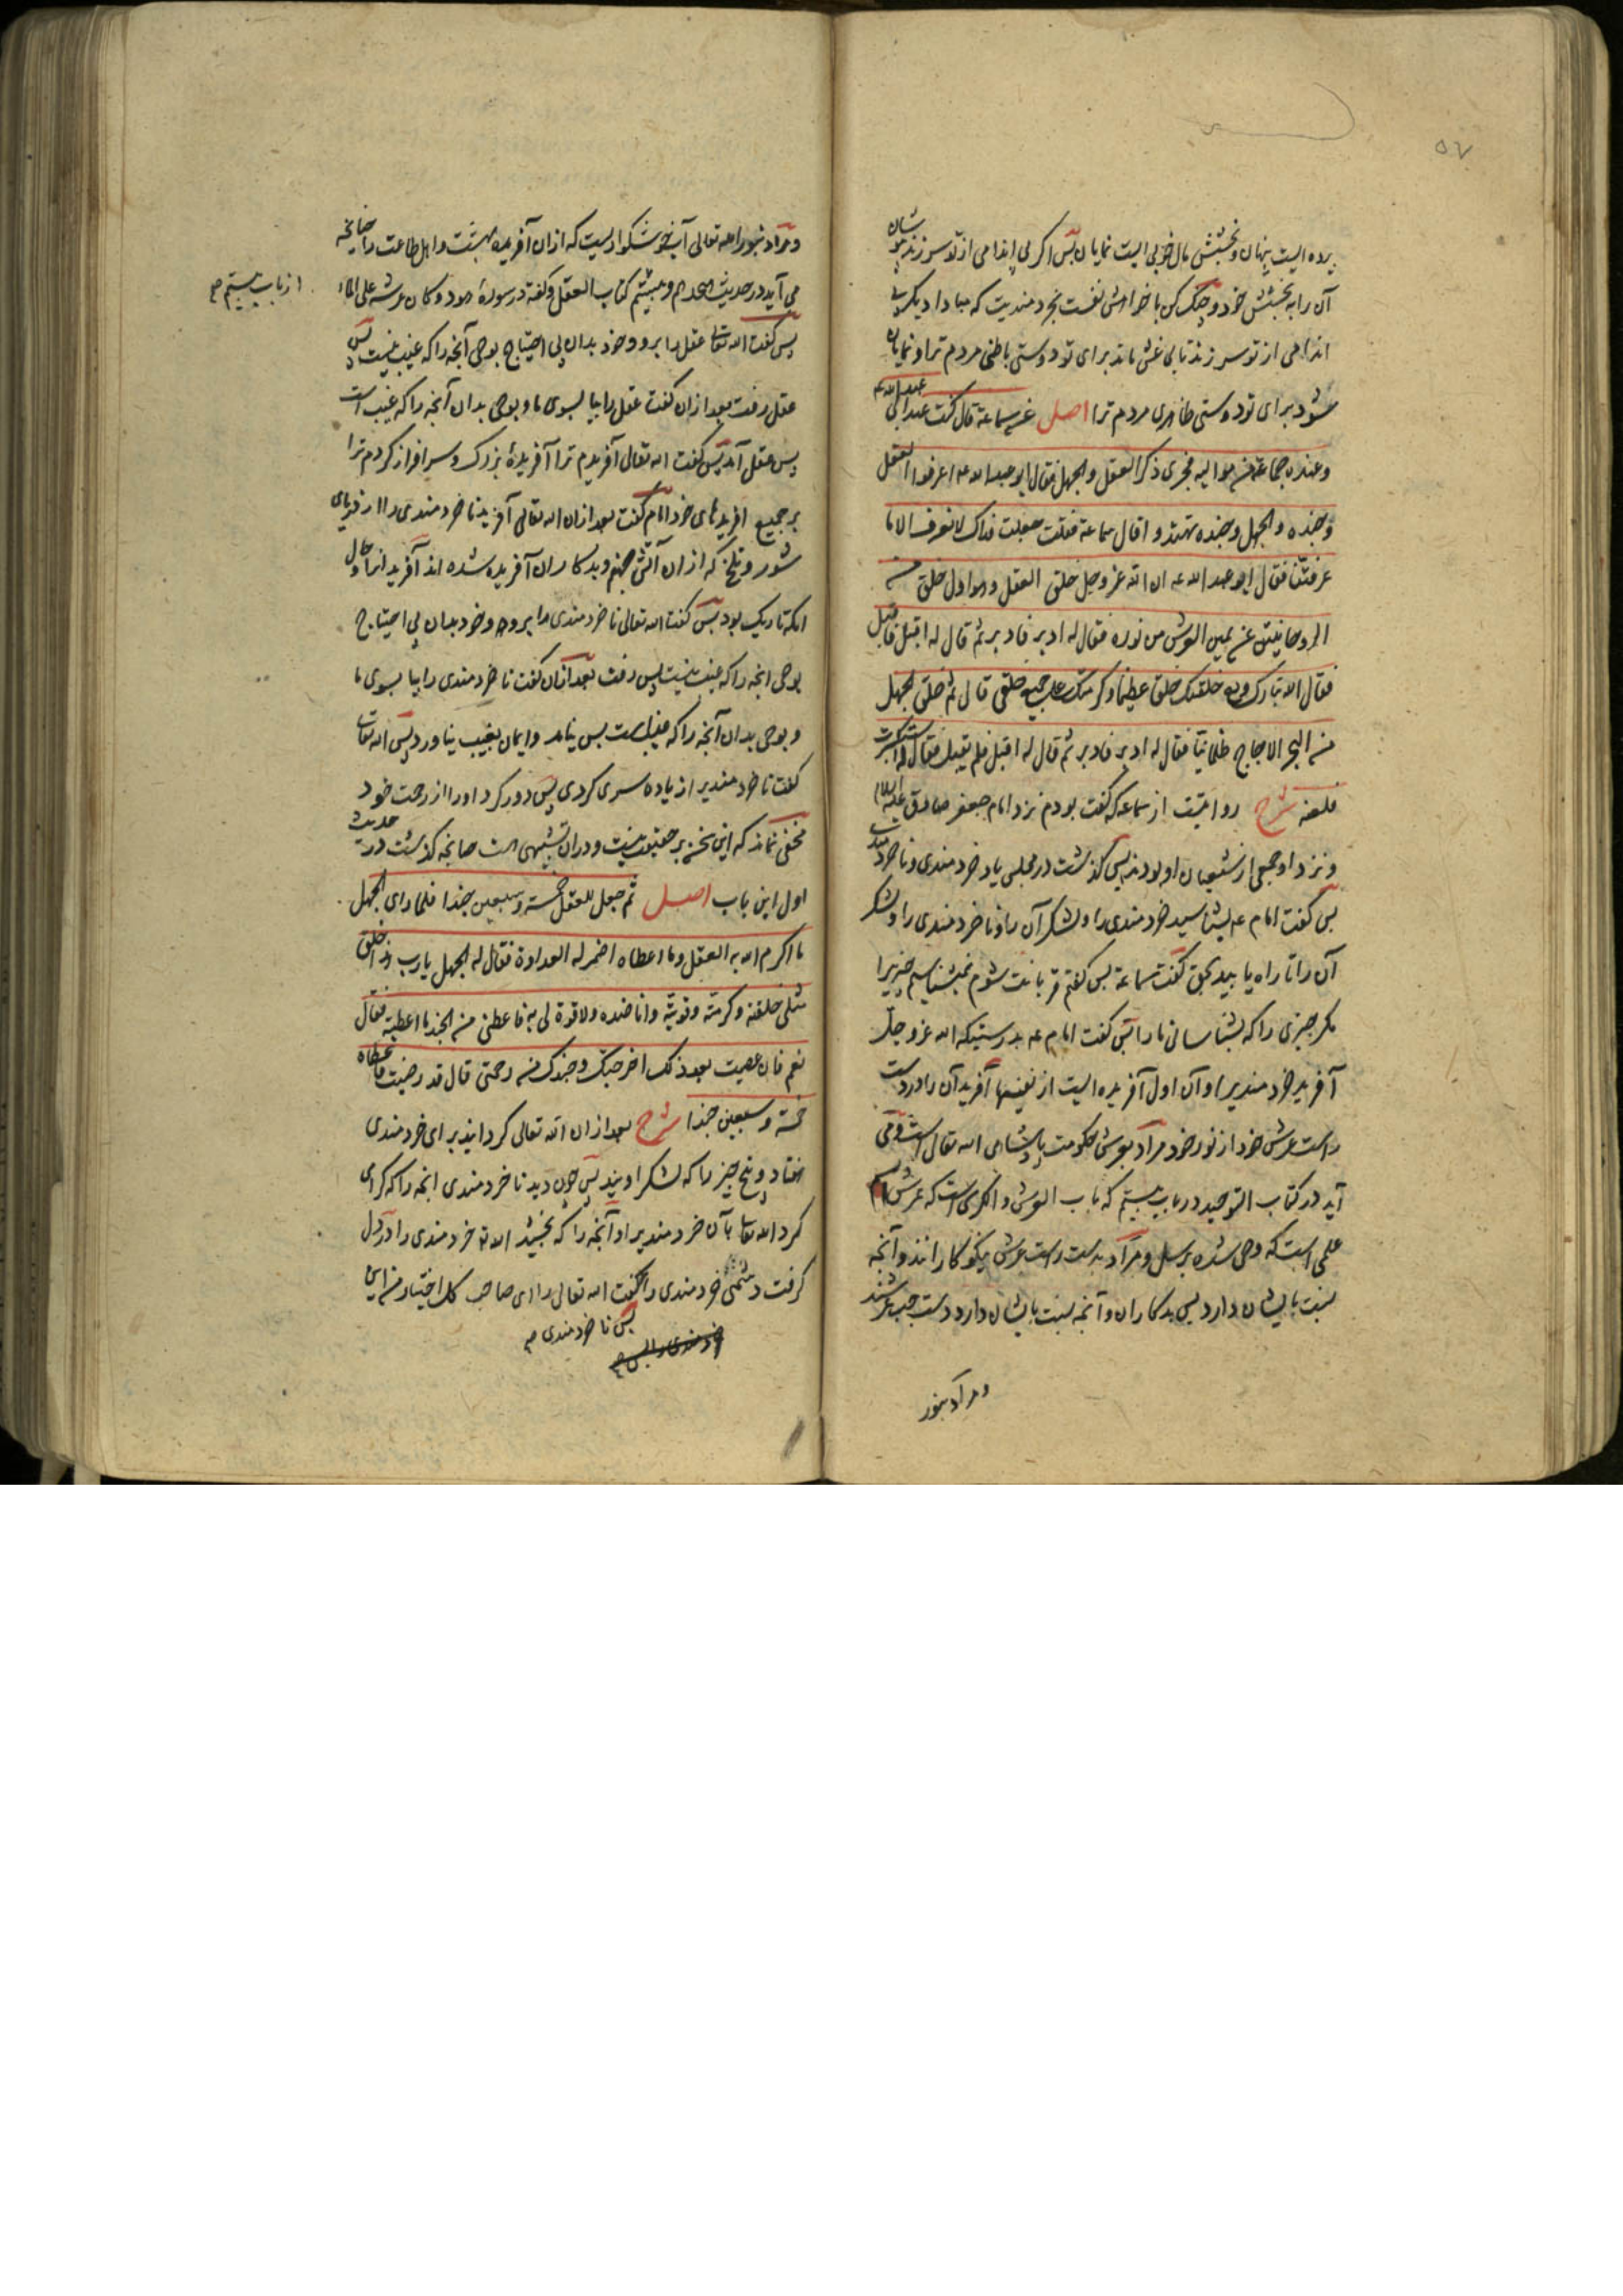 ۵۷
پرده ایست پنهان و بخشش مال خوبی ایست نمایان پس اگر بی اندامی از تو سر زند بپوشان
آن را به بخشش خود و جنگ کن با خواهش نفست بخردمندیت که مبادا دیگر بی
اندامی از تو سر زند تا بی غش ماند برای تو دوستی باطنی مردم ترا و نمایان
شود برای تو دوستی ظاهری مردم ترا اصل عن سماعة قال کنت عند ابی عبدالله ع
و عنده جماعة من موالیه فجری ذکر العقل و الجهل فقال ابو عبدالله ع اعرفوا العقل
و جنده و الجهل و جنده تهتدوا قال سماعة فقلت جعلت فداک لا نعرف الا ما
عرفتنا فقال ابو عبد الله ع ان الله عز وجل خلق العقل و هو اول خلق من
الروحانیین عن یمین العرش من نوره فقال له ادبر فادبر ثم قال له اقبل فاقبل
فقال الله تبارک و تع خلقتک خلقا عظیما و کرمتک علی جمیع خلقی قال ثم خلق الجهل
من البحر الاجاج ظلمانیا فقال له ادبر فادبر ثم قال له اقبل فلم یقبل فقال له استکبرت
فلعنه شرح روایتست از سماعه که گفت بودم نزد امام جعفر صادق علیه السلام
و نزد او جمعی از شیعیان او بودند پس گذشت در مجلس یاد خردمندی و ناخردمندی
پس گفت امام ع بشناسید خردمندی را و لشکر آن را و ناخردمندی را و لشکر
آن را تا راه یابید بحق گفت سماعة پس گفتم قربانت شوم نمیشناسیم چیزیرا
مگر چیزی را که بشناسانی ما را پس گفت امام ع بدرستیکه الله عز و جل
آفرید خردمندیرا و آن اول آفریده ایست از نفیسها آفرید آن را در دست
راست عرش خود از نور خود مراد بعرش حکومت و پادشاهی الله تعالی است و می
آید در کتاب التوحید در باب بیستم که باب العرش و الکرسی است که عرش نام
علمی است که وحی شده برسل و مراد بدست راست عرش نیکوکارانند و آنچه
نسبت بایشان دارد پس بدکاران و آنچه نسبت بایشان دارد دست چپ عرشند
و مراد بنور
و مراد بنور الله تعالی آب خوشگوار ایست که از ان آفریده بهشت و اهل طاعت را چنانچه
می آید در حدیث هجدهم و بیستم کتاب العقل و گفته در سورهٔ هود و کان عرشه علی الماء
از باب بیستم صح
پس گفت الله تعالی عقل را برو و خود بدان بی احتیاج بوحی آنچه را که غیب نیست پس
عقل رفت بعد از ان گفت عقل را بیا بسوی ما و بوحی بدان آنچه را که غیب است
پس عقل آمد پس گفت الله تعالی آفریدم ترا آفریدهٔ بزرگ و سر افراز کردم ترا
بر جمیع افریدهای خود امام گفت بعد از ان الله تعالی آفرید ناخردمندی را از دریای
شور و تلخ که از ان آتش جهنم و بدکاران آفریده شده اند آفرید انرا و حال
انکه تاریک بود پس گفت الله تعالی ناخردمندی را برو و خود بدان بی احتیاج
بوحی انچه را که غیب نیست پس رفت بعد از ان گفت ناخردمندی را بیا بسوی ما
و بوحی بدان آنچه را که غیب است پس نیامد و ایمان بغیب نیاورد پس الله تعالی
گفت ناخردمندیرا زیاده سری کردی پس دور کرد او را از رحمت خود
مخفی نماند که این سخن بر حقیقت نیست و در ان تشبیهی است چنانچه گذشت در حدیث
اول این باب اصل ثم جعل للعقل خمسة و سبعین جندا فلما رای الجهل
ما اکرم الله به العقل و ما اعطاه اضمر له العداوة فقال له الجهل یا رب هذا خلق
مثلی خلقته و کرمته و قویته و انا ضده و لا قوة لی به فاعطنی من الجند ما اعطیته فقال
نعم فان عصیت بعد ذلک اخرجتک و جندک من رحمتی قال قد رضیت فاعطاه
خمسة و سبعین جندا شرح بعد از ان الله تعالی گردانید برای خردمندی
هفتاد و پنج چیز را که لشکر اویند پس چون دید ناخردمندی انچه را که گرامی
کرد الله تعالی بآن خردمندیرا و آنچه را که بخشید الله ته خردمندی را در دل
گرفت دشمنی خردمندی را گفت الله تعالی را ای صاحب کل اختیار من این
پس ناخردمندی صح